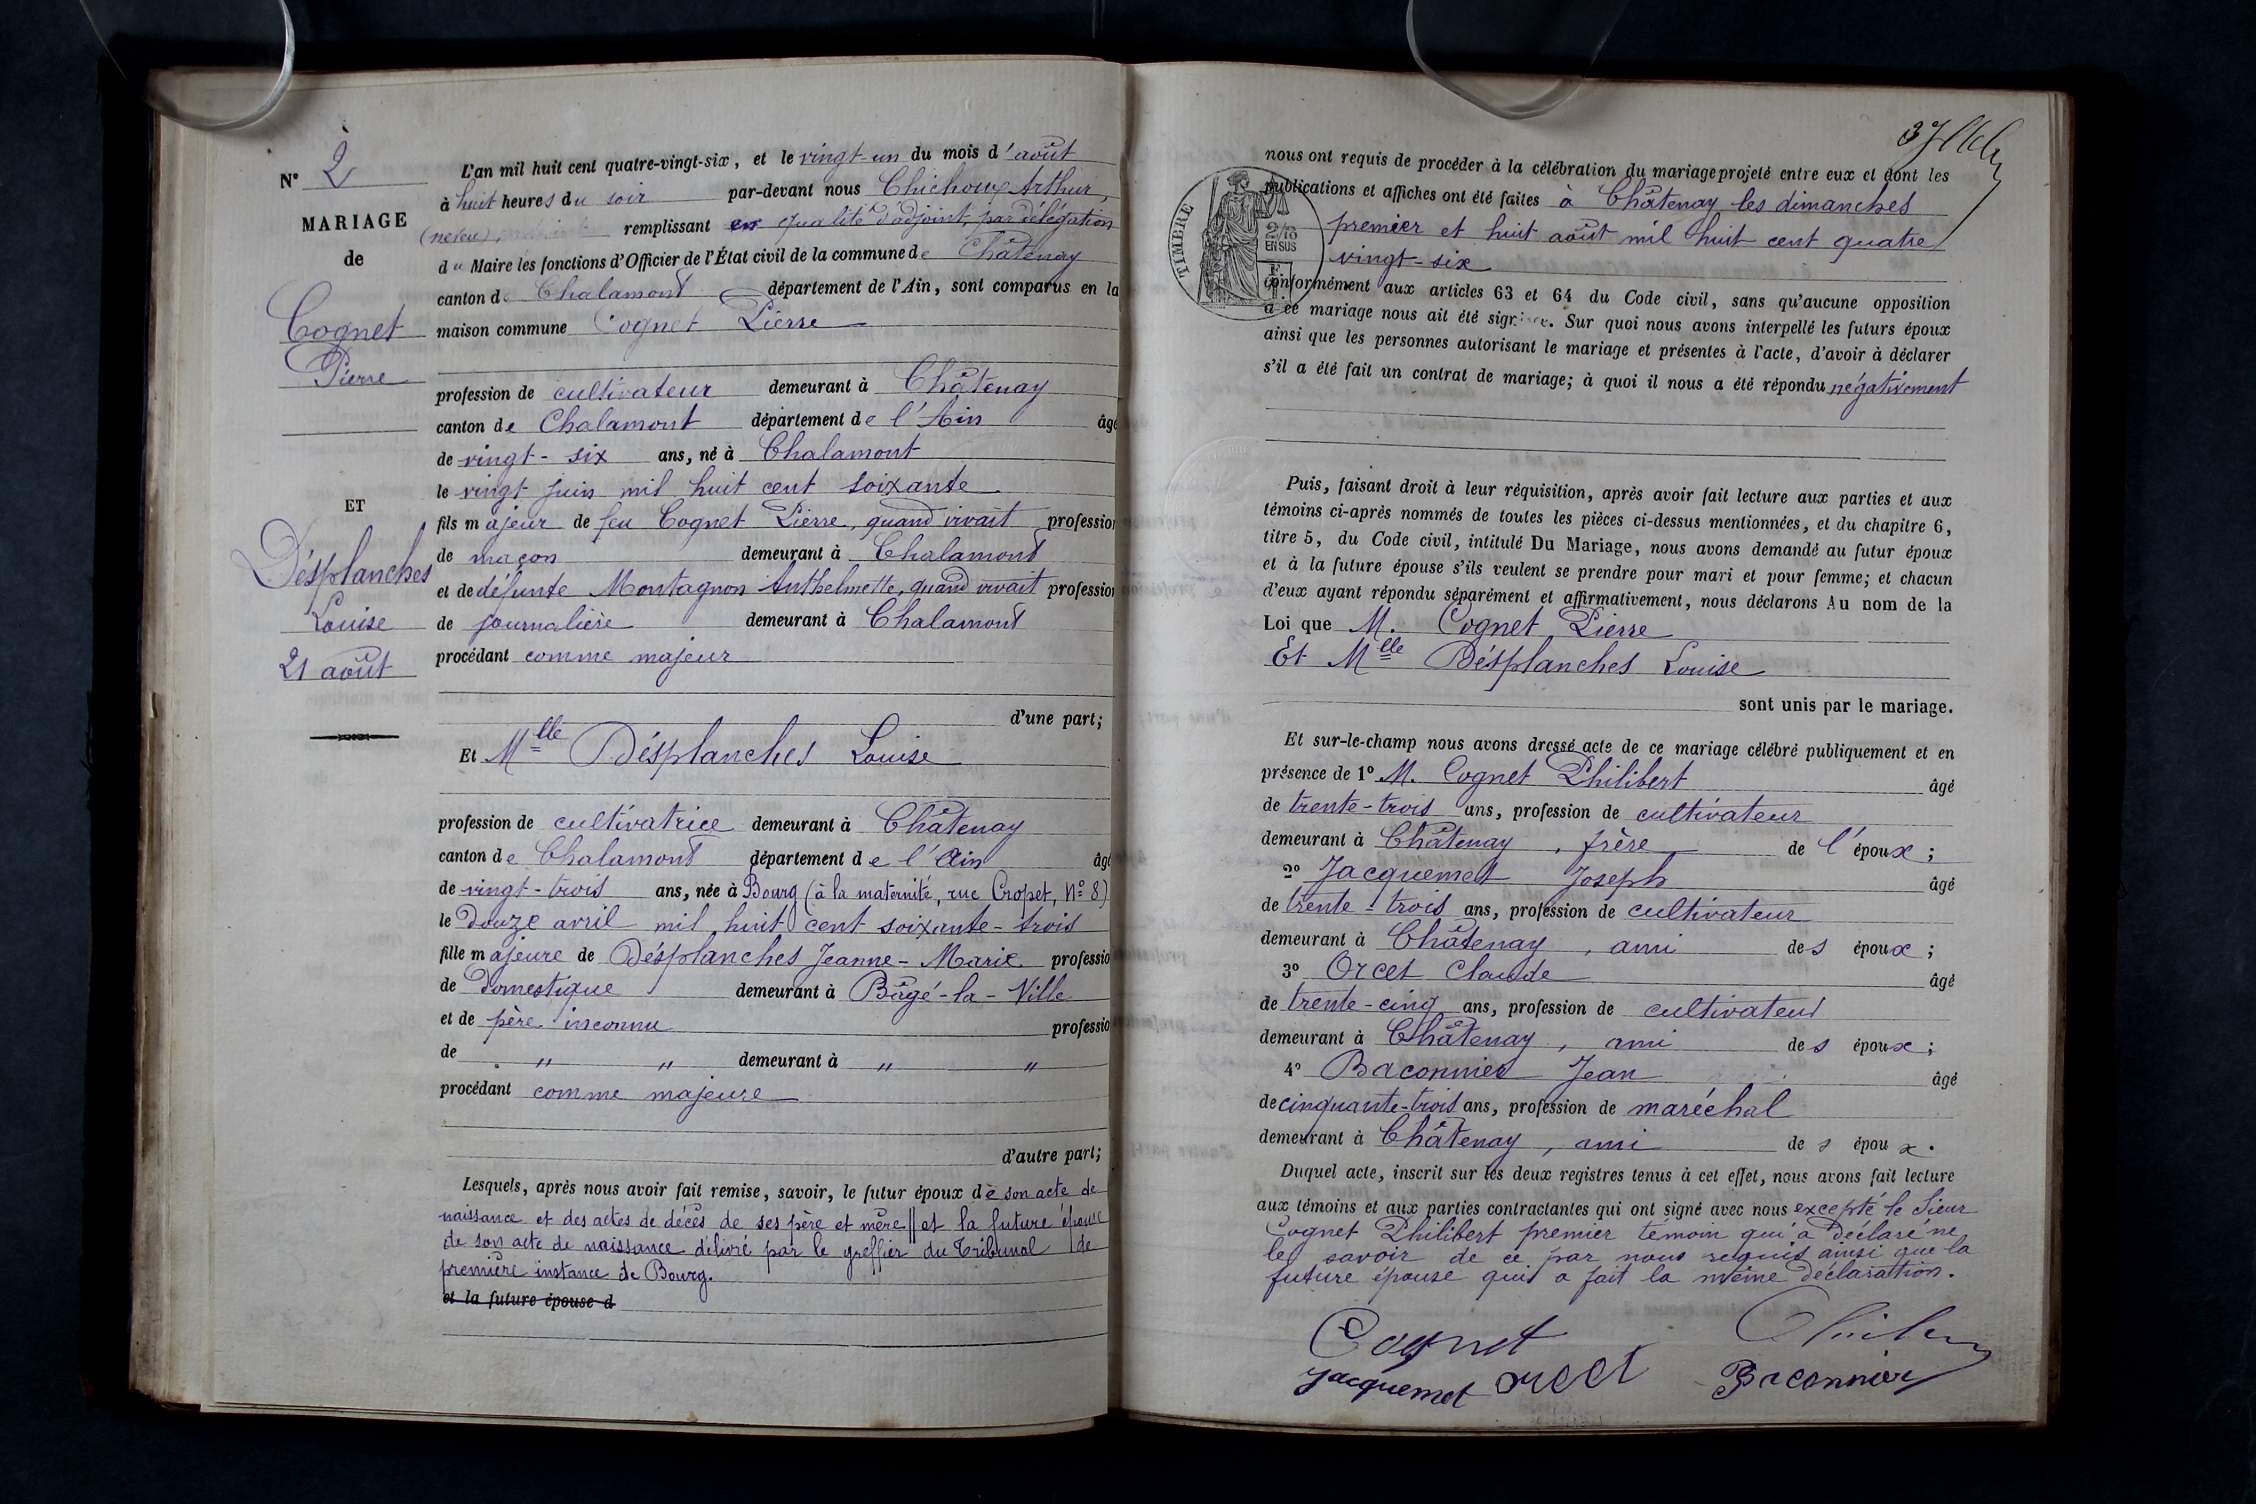 N° 2
MARIAGE
de
Cognet
Pierre
ET
Désplanches
Louise
21 août
L'an mil huit cent quatre-vingt-six, et le vingt-un du mois d'août
à huit heures du soir par-devant nous Chichoux Arthur
(neveu), remplissant en qualité d'adjoint, par délégation
du Maire les fonctions d'Officier de l'État civil de la commune de Châtenay
canton de Chalamont département de l'Ain, sont comparus en la
maison commune Cognet Pierre
profession de cultivateur demeurant à Châtenay
canton de Chalamont département de l'Ain âgé
de vingt-six ans, né à Chalamont
le vingt juin mil huit cent soixante
fils majeur de feu Cognet Pierre, quand vivait profession
de maçon demeurant à Chalamont
et de défunte Montagnon Anthelmette, quand vivait profession
de journalière demeurant à Chalamont
procédant comme majeur
d'une part;
Et Mlle Désplanches Louise
profession de cultivatrice demeurant à Châtenay
canton de Chalamont département de l'Ain âgé
de vingt-trois ans, née à Bourg (à la maternité, rue Cropet, N° 8)
le douze avril mil huit cent soixante-trois
fille majeure de Désplanches Jeanne-Marie professio
de domestique demeurant à Bâgé-la-Ville
et de père inconnu professio
de " " demeurant à " "
procédant comme majeure
d'autre part;
Lesquels, après nous avoir fait remise, savoir, le futur époux de son acte de
naissance et des actes de décès de ses père et mère || et la future épouse
de son acte de naissance délivré par le greffier du Tribunal de
première instance de Bourg.
et la future épouse d
37
TIMBRE
2/10
EN SUS
nous ont requis de procéder à la célébration du mariage projeté entre eux et dont les
publications et affiches ont été faites à Châtenay les dimanches
premier et huit août mil huit cent quatre
vingt-six
conformément aux articles 63 et 64 du Code civil, sans qu'aucune opposition
à ce mariage nous ait été signifiée. Sur quoi nous avons interpellé les futurs époux
ainsi que les personnes autorisant le mariage et présentes à l'acte, d'avoir à déclarer
s'il a été fait un contrat de mariage; à quoi il nous a été répondu négativement
Puis, faisant droit à leur réquisition, après avoir fait lecture aux parties et aux
témoins ci-après nommés de toutes les pièces ci-dessus mentionnées, et du chapitre 6,
titre 5, du Code civil, intitulé Du Mariage, nous avons demandé au futur époux
et à la future épouse s'ils veulent se prendre pour mari et pour femme; et chacun
d'eux ayant répondu séparément et affirmativement, nous déclarons Au nom de la
Loi que M. Cognet Pierre
Et Mlle Désplanches Louise
sont unis par le mariage.
Et sur-le-champ nous avons dressé acte de ce mariage célébré publiquement et en
présence de 1° M. Cognet Philibert âgé
de trente-trois ans, profession de cultivateur
demeurant à Châtenay, frère de l'époux;
2° Jacquemet Joseph âgé
de trente-trois ans, profession de cultivateur
demeurant à Châtenay, ami des époux;
3° Orcet Claude âgé
de trente-cinq ans, profession de cultivateur
demeurant à Châtenay, ami des époux;
4° Baconnier Jean âgé
de cinquante-trois ans, profession de maréchal
demeurant à Châtenay, ami des époux.
Duquel acte, inscrit sur les deux registres tenus à cet effet, nous avons fait lecture
aux témoins et aux parties contractantes qui ont signé avec nous excepté le Sieur
Cognet Philibert premier témoin qui a déclaré ne
le savoir de ce par nous requis ainsi que la
future épouse qui a fait la même déclaration.
Cognet
Jacquemet Orcet Baconnier